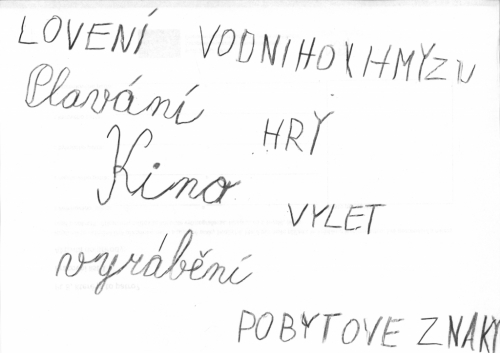 LOVENÍ VODNIHO HMYZU
Plavání
HRY
Kino
VYLET
vyrábění
POBYTOVE ZNAKY